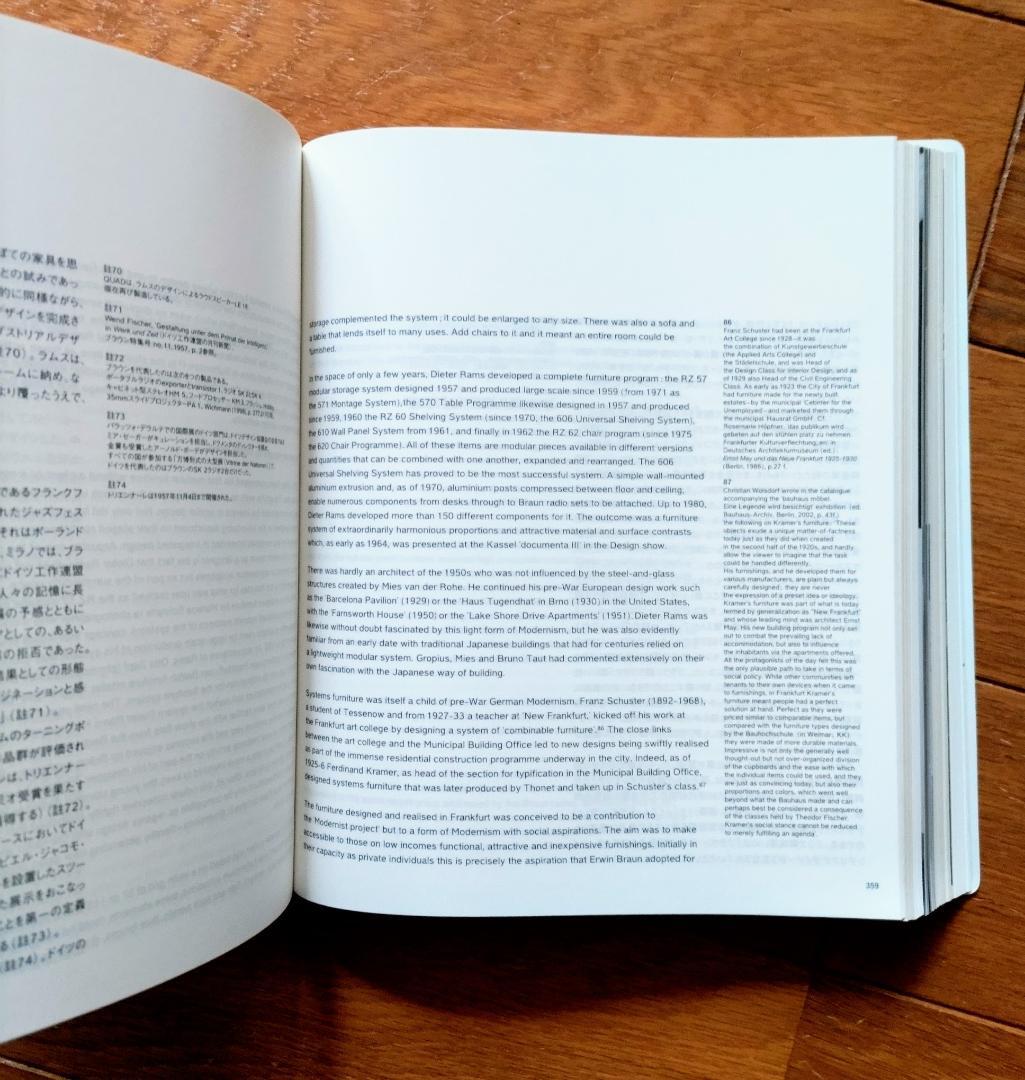 ぼての家具を思
との試みであっ
的に同様ながら、
ザインを完成さ
ダストリアルデザ
70)。ラムスは、
ームに納め、な
より覆ったうえで、
であるフランクフ
れたジャズフェス
それはポーランド
、ミラノでは、ブラ
ドイツ工作連盟
人々の記憶に長
の予感とともに
としての、あるい
の拒否であった。
結果としての形態
ジネーションと感
」(註71)。
ムのターニングポ
品群が評価され
ンは、トリエンナー
ミオ受賞を果たす
得する)(註72)。
ースにおいてドイ
ピエル・ジャコモ・
を設置したスツー
た展示をおこなっ
ことを第一の定義
る(註73)。
(註74)。ドイツの
註70
QUADは、ラムスのデザインによるラウドスピーカーLE1を
現在再び製造している。
註71
Wend Fischer, 'Gestaltung unter dem Primat der Intelligenz'
in Werk und Zeit (ドイツ工作連盟の月刊新聞)、
ブラウン特集号 no.11, 1957, p.2参照。
註72
ブラウンを代表したのは次の6つの製品である。
註73
註74
トリエンナーレは1957年11月4日まで開催された。
storage complemented the system; it could be enlarged to any size. There was also a sofa and
a table that lends itself to many uses. Add chairs to it and it meant an entire room could be
furnished.
In the space of only a few years, Dieter Rams developed a complete furniture program: the RZ 57
modular storage system designed 1957 and produced large scale since 1959 (from 1971 as
the 571 Montage System), the 570 Table Programme likewise designed in 1957 and produced
since 1959, 1960 the RZ 60 Shelving System (since 1970, the 606 Universal Shelving System),
the 610 Wall Panel System from 1961, and finally in 1962 the RZ 62 chair program (since 1975
the 620 Chair Programme). All of these items are modular pieces available in different versions
and quantities that can be combined with one another, expanded and rearranged. The 606
Universal Shelving System has proved to be the most successful system. A simple wall-mounted
aluminium extrusion and, as of 1970, aluminium posts compressed between floor and ceiling,
enable numerous components from desks through to Braun radio sets to be attached. Up to 1980,
Dieter Rams developed more than 150 different components for it. The outcome was a furniture
system of extraordinarily harmonious proportions and attractive material and surface contrasts
which, as early as 1964, was presented at the Kassel 'documenta III' in the Design show.
There was hardly an architect of the 1950s who was not influenced by the steel-and-glass
structures created by Mies van der Rohe. He continued his pre-War European design work such
as the 'Barcelona Pavilion' (1929) or the 'Haus Tugendhat' in Brno (1930) in the United States,
with the 'Farnsworth House' (1950) or the 'Lake Shore Drive Apartments' (1951). Dieter Rams was
likewise without doubt fascinated by this light form of Modernism, but he was also evidently
familiar from an early date with traditional Japanese buildings that had for centuries relied on
a lightweight modular system. Gropius, Mies and Bruno Taut had commented extensively on their
own fascination with the Japanese way of building.
Systems furniture was itself a child of pre-War German Modernism. Franz Schuster (1892-1968),
a student of Tessenow and from 1927-33 a teacher at 'New Frankfurt,' kicked off his work at
the Frankfurt art college by designing a system of 'combinable furniture'.86 The close links
between the art college and the Municipal Building Office led to new designs being swiftly realised
as part of the immense residential construction programme underway in the city. Indeed, as of
1925-6 Ferdinand Kramer, as head of the section for typification in the Municipal Building Office,
designed systems furniture that was later produced by Thonet and taken up in Schuster's class.87
The furniture designed and realised in Frankfurt was conceived to be a contribution to
'the Modernist project' but to a form of Modernism with social aspirations. The aim was to make
accessible to those on low incomes functional, attractive and inexpensive furnishings. Initially in
their capacity as private individuals this is precisely the aspiration that Erwin Braun adopted for
86
Franz Schuster had been at the Frankfurt
Art College since 1928–it was
the combination of Kunstgewerbeschule
(the Applied Arts College) and
the Städelschule, and was Head of
the Design Class for Interior Design, and as
of 1929 also Head of the Civil Engineering
Class. As early as 1923 the City of Frankfurt
had furniture made for the newly built
estates–by the municipal 'Center for the
Unemployed'–and marketed them through
the municipal 'Hausrat GmbH'. Cf.
Rosemarie Höpfner, 'das publikum wird
gebeten auf den stühlen platz zu nehmen.
Frankfurter Kulturverflechtung,en' in
Deutsches Architekturmuseum (ed.)
Ernst May und das Neue Frankfurt 1925-1930
(Berlin, 1986), p.27 f.
87
Christian Wolsdorf wrote in the catalogue
accompanying the 'bauhaus möbel.
Eine Legende wird besichtigt' exhibition (ed.
Bauhaus-Archiv, Berlin, 2002, p. 43f.)
the following on Kramer's furniture: 'These
objects exude a unique matter-of-factness
today just as they did when created
in the second half of the 1920s, and hardly
allow the viewer to imagine that the task
could be handled differently.
His furnishings, and he developed them for
various manufacturers, are plain but always
carefully designed; they are never
the expression of a preset idea or ideology.
Kramer's furniture was part of what is today
termed by generalization as 'New Frankfurt'
and whose leading mind was architect Ernst
May. His new building program not only set
out to combat the prevailing lack of
accommodation, but also to influence
the inhabitants via the apartments offered.
All the protagonists of the day felt this was
the only plausible path to take in terms of
social policy. While other communities left
tenants to their own devices when it came
to furnishings, in Frankfurt Kramer's
furniture meant people had a perfect
solution at hand. Perfect as they were
priced similar to comparable items, but
compared with the furniture types designed
by the Bauhochschule (in Weimar, KK)
they were made of more durable materials.
Impressive is not only the generally well
thought-out but not over-organized division
of the cupboards and the ease with which
the individual items could be used, and they
are just as convincing today, but also their
proportions and colors, which went well
beyond what the Bauhaus made and can
perhaps best be considered a consequence
of the classes held by Theodor Fischer.
Kramer's social stance cannot be reduced
to merely fulfilling an agenda'.
359